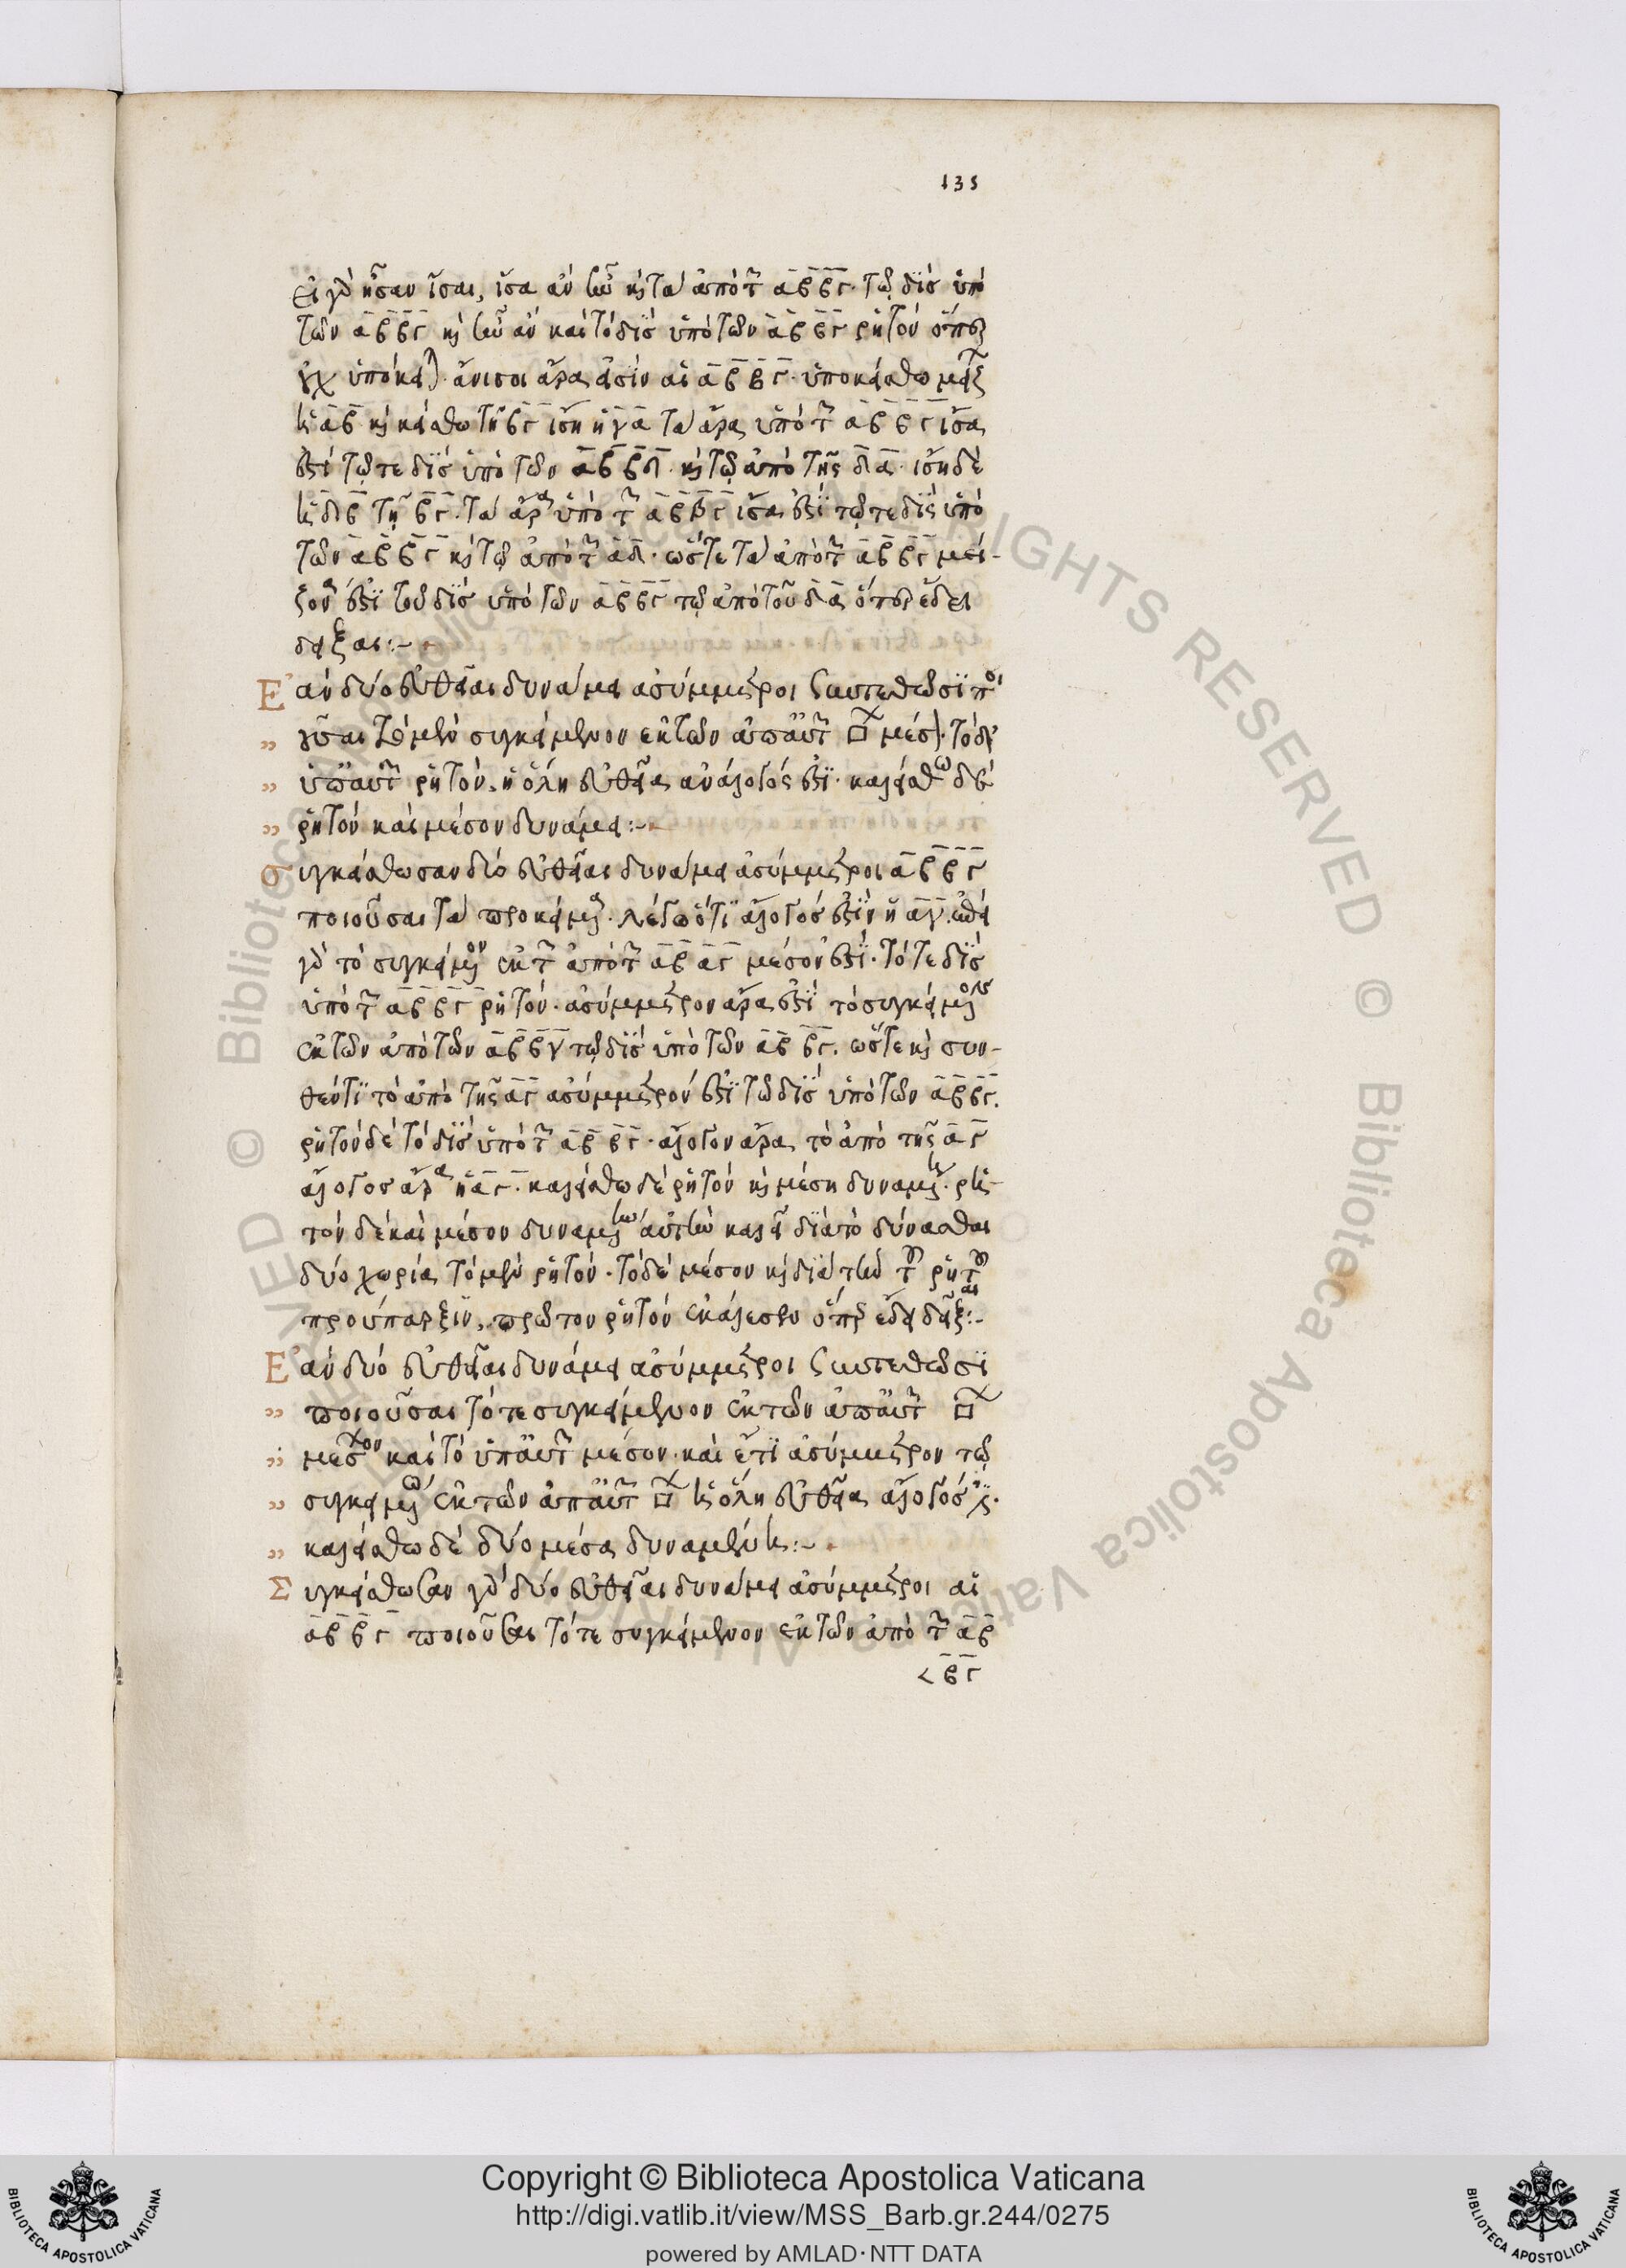 135
εἰ γὰρ ἦσαν ἴσαι, ἴσα ἂν ἦν καὶ τὰ ἀπὸ τῶν αβ βγ· τῷ δὶς ὑπὸ
τῶν αβ βγ καὶ ἦν ἂν καὶ τὸ δὶς ὑπὸ τῶν αβ βγ ῥητὸν ὅπερ
οὐχ ὑπόκειται· ἄνισοι ἄρα εἰσὶν αἱ αβ βγ· ὑποκείσθω μείζων
ἡ αβ καὶ κείσθω τῇ βγ ἴση ἡ γα τὰ ἄρα ὑπὸ τῶν αβ βγ ἴσα
ἐστὶ τῷ τε δὶς ὑπὸ τῶν αβ βδ· καὶ τῷ ἀπὸ τῆς δα· ἴση δὲ
ἡ δβ τῇ βγ· τὰ ἄρα ὑπὸ τῶν αβ βγ ἴσα ἐστὶ τῷ τε δὶς ὑπὸ
τῶν αβ βγ καὶ τῷ ἀπὸ τῶν αδ· ὥστε τὰ ἀπὸ τῶν αβ βγ μεί-
ζονα ἐστὶ τοῦ δὶς ὑπὸ τῶν αβ βγ τῷ ἀπὸ τοῦ δα ὅπερ ἔδει
δεῖξαι:-
Ἐὰν δύο εὐθεῖαι δυνάμει ἀσύμμετροι συντεθῶσι ποι
οῦσαι τὸ μὲν συγκείμενον ἐκ τῶν ἀπ' αὐτῶν □ μέσον· τὸ δ'
ὑπ' αὐτῶν ῥητόν, ἡ ὅλη εὐθεῖα ἀνάλογός ἐστι· καλείσθω δὲ
ῥητὸν καὶ μέσον δυνάμει:-
συγκείσθωσαν δύο εὐθεῖαι δυνάμει ἀσύμμετροι αβ βγ
ποιοῦσαι τὰ προκείμενα· λέγω ὅτι ἄλογός ἐστὶν ἡ αγ· ἐπεὶ
γὰρ τὸ συγκείμενον ἐκ τῶν ἀπὸ τῶν αβ αγ μέσον ἐστί· τό τε δὶς
ὑπὸ τῶν αβ βγ ῥητόν· ἀσύμμετρον ἄρα ἐστὶ τὸ συγκείμενον
ἐκ τῶν ἀπὸ τῶν αβ βγ τῷ δὶς ὑπὸ τῶν αβ βγ. ὥστε καὶ συν-
θέντι τὸ ἀπὸ τῆς αγ ἀσύμμετρόν ἐστι τῷ δὶς ὑπὸ τῶν αβ βγ.
ῥητὸν δὲ τὸ δὶς ὑπὸ τῶν αβ βγ· ἄλογον ἄρα τὸ ἀπὸ τῆς αγ
ἄλογος ἄρα ἡ αγ· καλείσθω δὲ ῥητὸν καὶ μέση δυναμένη· ῥη-
τὸν δὲ καὶ μέσον δυναμένην αὐτὴν καλεῖ διὰ τὸ δύνασθαι
δύο χωρία τὸ μὲν ῥητόν· τὸ δὲ μέσον καὶ διὰ τὴν τοῦ ῥητοῦ
προύπαρξιν, πρῶτον ῥητὸν ἐκάλεσεν ὅπερ ἔδει δεῖξαι:-
Ἐὰν δύο εὐθεῖαι δυνάμει ἀσύμμετροι συντεθῶσι
ποιοῦσαι τό τε συγκείμενον ἐκ τῶν ἀπ' αὐτῶν □
μέσον καὶ τὸ ὑπ' αὐτῶν μέσον· καὶ ἔτι ἀσύμμετρον τῷ
συγκειμένῳ ἐκ τῶν ἀπ' αὐτῶν □ ἡ ὅλη εὐθεῖα ἄλογός ἐστι·
καλείσθω δὲ δύο μέσα δυναμένη:-
Συγκείσθωσαν γὰρ δύο εὐθεῖαι δυνάμει ἀσύμμετροι αἱ
αβ βγ ποιοῦσαι τό τε συγκείμενον ἐκ τῶν ἀπὸ τῶν αβ
βγ
Copyright © Biblioteca Apostolica Vaticana
http://digi.vatlib.it/view/MSS_Barb.gr.244/0275
powered by AMLAD·NTT DATA